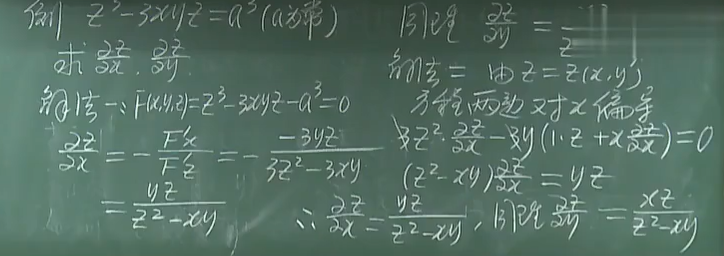 例 z³-3xyz=a³(a为常)
求 ∂z/∂x, ∂z/∂y
解法一:F(x,y,z)=z³-3xyz-a³=0
∂z/∂x = -F'x/F'z = -(-3yz)/(3z²-3xy)
= yz/(z²-xy)
同理 ∂z/∂y =
解法二 由z=z(x,y)
方程两边对x偏导
3z²·∂z/∂x-3y(1·z+x∂z/∂x)=0
(z²-xy)∂z/∂x=yz
∴ ∂z/∂x = yz/(z²-xy), 同理 ∂z/∂y = xz/(z²-xy)